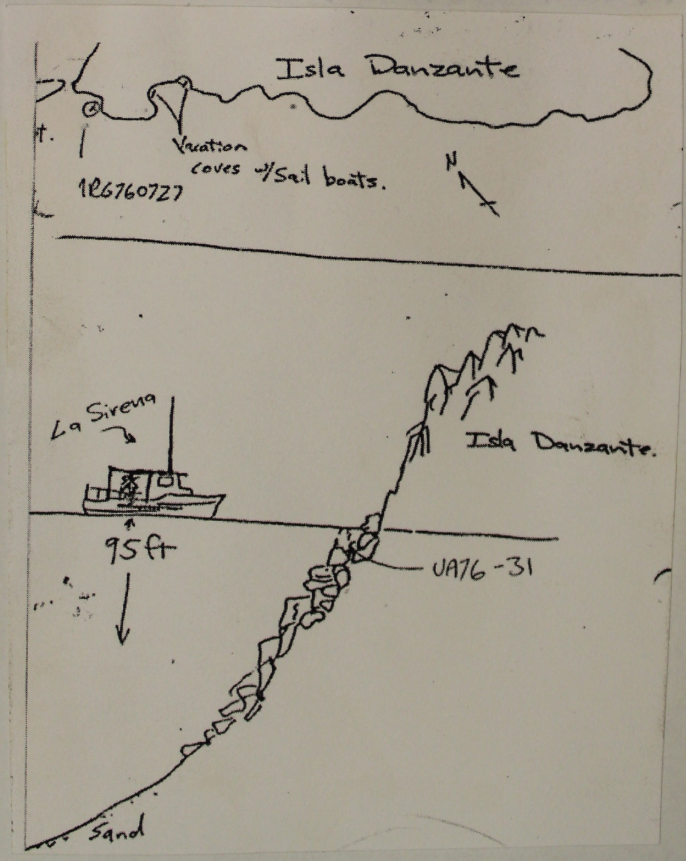 Isla Danzante
t.
Vacation
coves w/Sail boats.
N
1RG760727
La Sirena
Isla Danzante.
95 ft
UA76-31
Sand